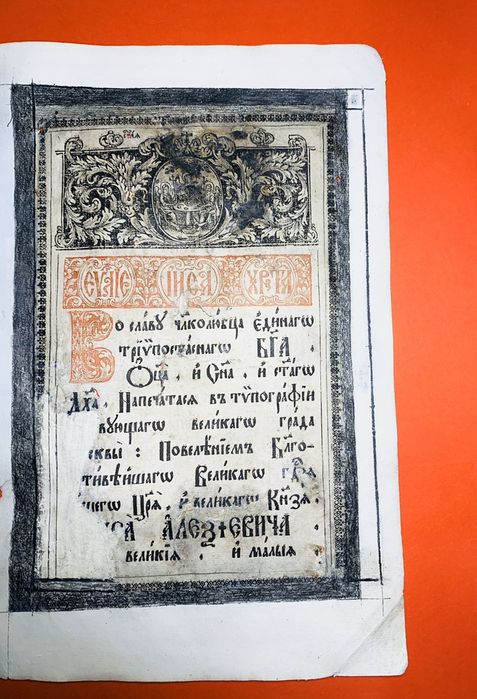 ЕѴ҃ЛІЕ ІИСА ХРТА
Во славу чл҃колюбца єдинагѡ
трїѵпостаснагѡ БГ҃А .
Оц҃а . и Сн҃а . и ст҃агѡ
Дх҃а . Напечатася въ тѵпографїи
вующагѡ великагѡ града
сквы : Повелѣнїемъ Благо-
тивѣйшагѡ Великагѡ
шегѡ Цр҃я . и великагѡ Кн҃зя .
АЛЕѮЇЕВИЧА .
великїя . и малыя .